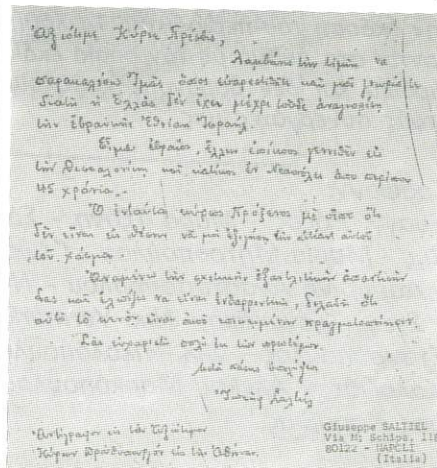 Ἀξιότιμε Κύριε Πρέσβυ,
Λαμβάνω τὴν τιμὴν να
παρακαλέσω Ὑμᾶς ὅπως εὐαρεστηθῆτε καὶ μοῦ
διατὶ ἡ Ἑλλὰς δὲν ἔχει μέχρι τοῦδε ἀναγνωρίσει
τὴν ἑβραϊκὴν Ἰσραήλ.
Εἶμαι ἑβραῖος, ἕλλην γεννηθεὶς εἰς
τὴν Θεσσαλονίκη καὶ κάτοικος ἐν Νεαπόλει ἀπὸ περίπου
45 χρόνια.
Ὁ ἐνταῦθα κύριος Πρόξενος μὲ ὅτι
δὲν εἶναι εἰς θέσιν νὰ μοῦ ἐξηγήσῃ τὴν αἰτίαν αὐτοῦ
τοῦ χάσμα.
Ἀναμένω τὴν σχετικὴν ἀπάντησιν
σας καὶ ἐλπίζω να εἶναι ἐνθαρρυντική, ὅτι
αὐτὸ τὸ κενὸν εἶναι
Σᾶς εὐχαριστῶ πολὺ ἐκ τῶν προτέρων.
Μετὰ πάσης
Ἰωσὴφ Σαλτιέλ
Ἀντίγραφον εἰς τὸν Ἀξιότιμον
Κύριον Πρωθυπουργὸν εἰς τὰς Ἀθήνας.
Giuseppe SALTIEL
Via M. Schipa, 11
80122 - NAPOLI
(Italia)